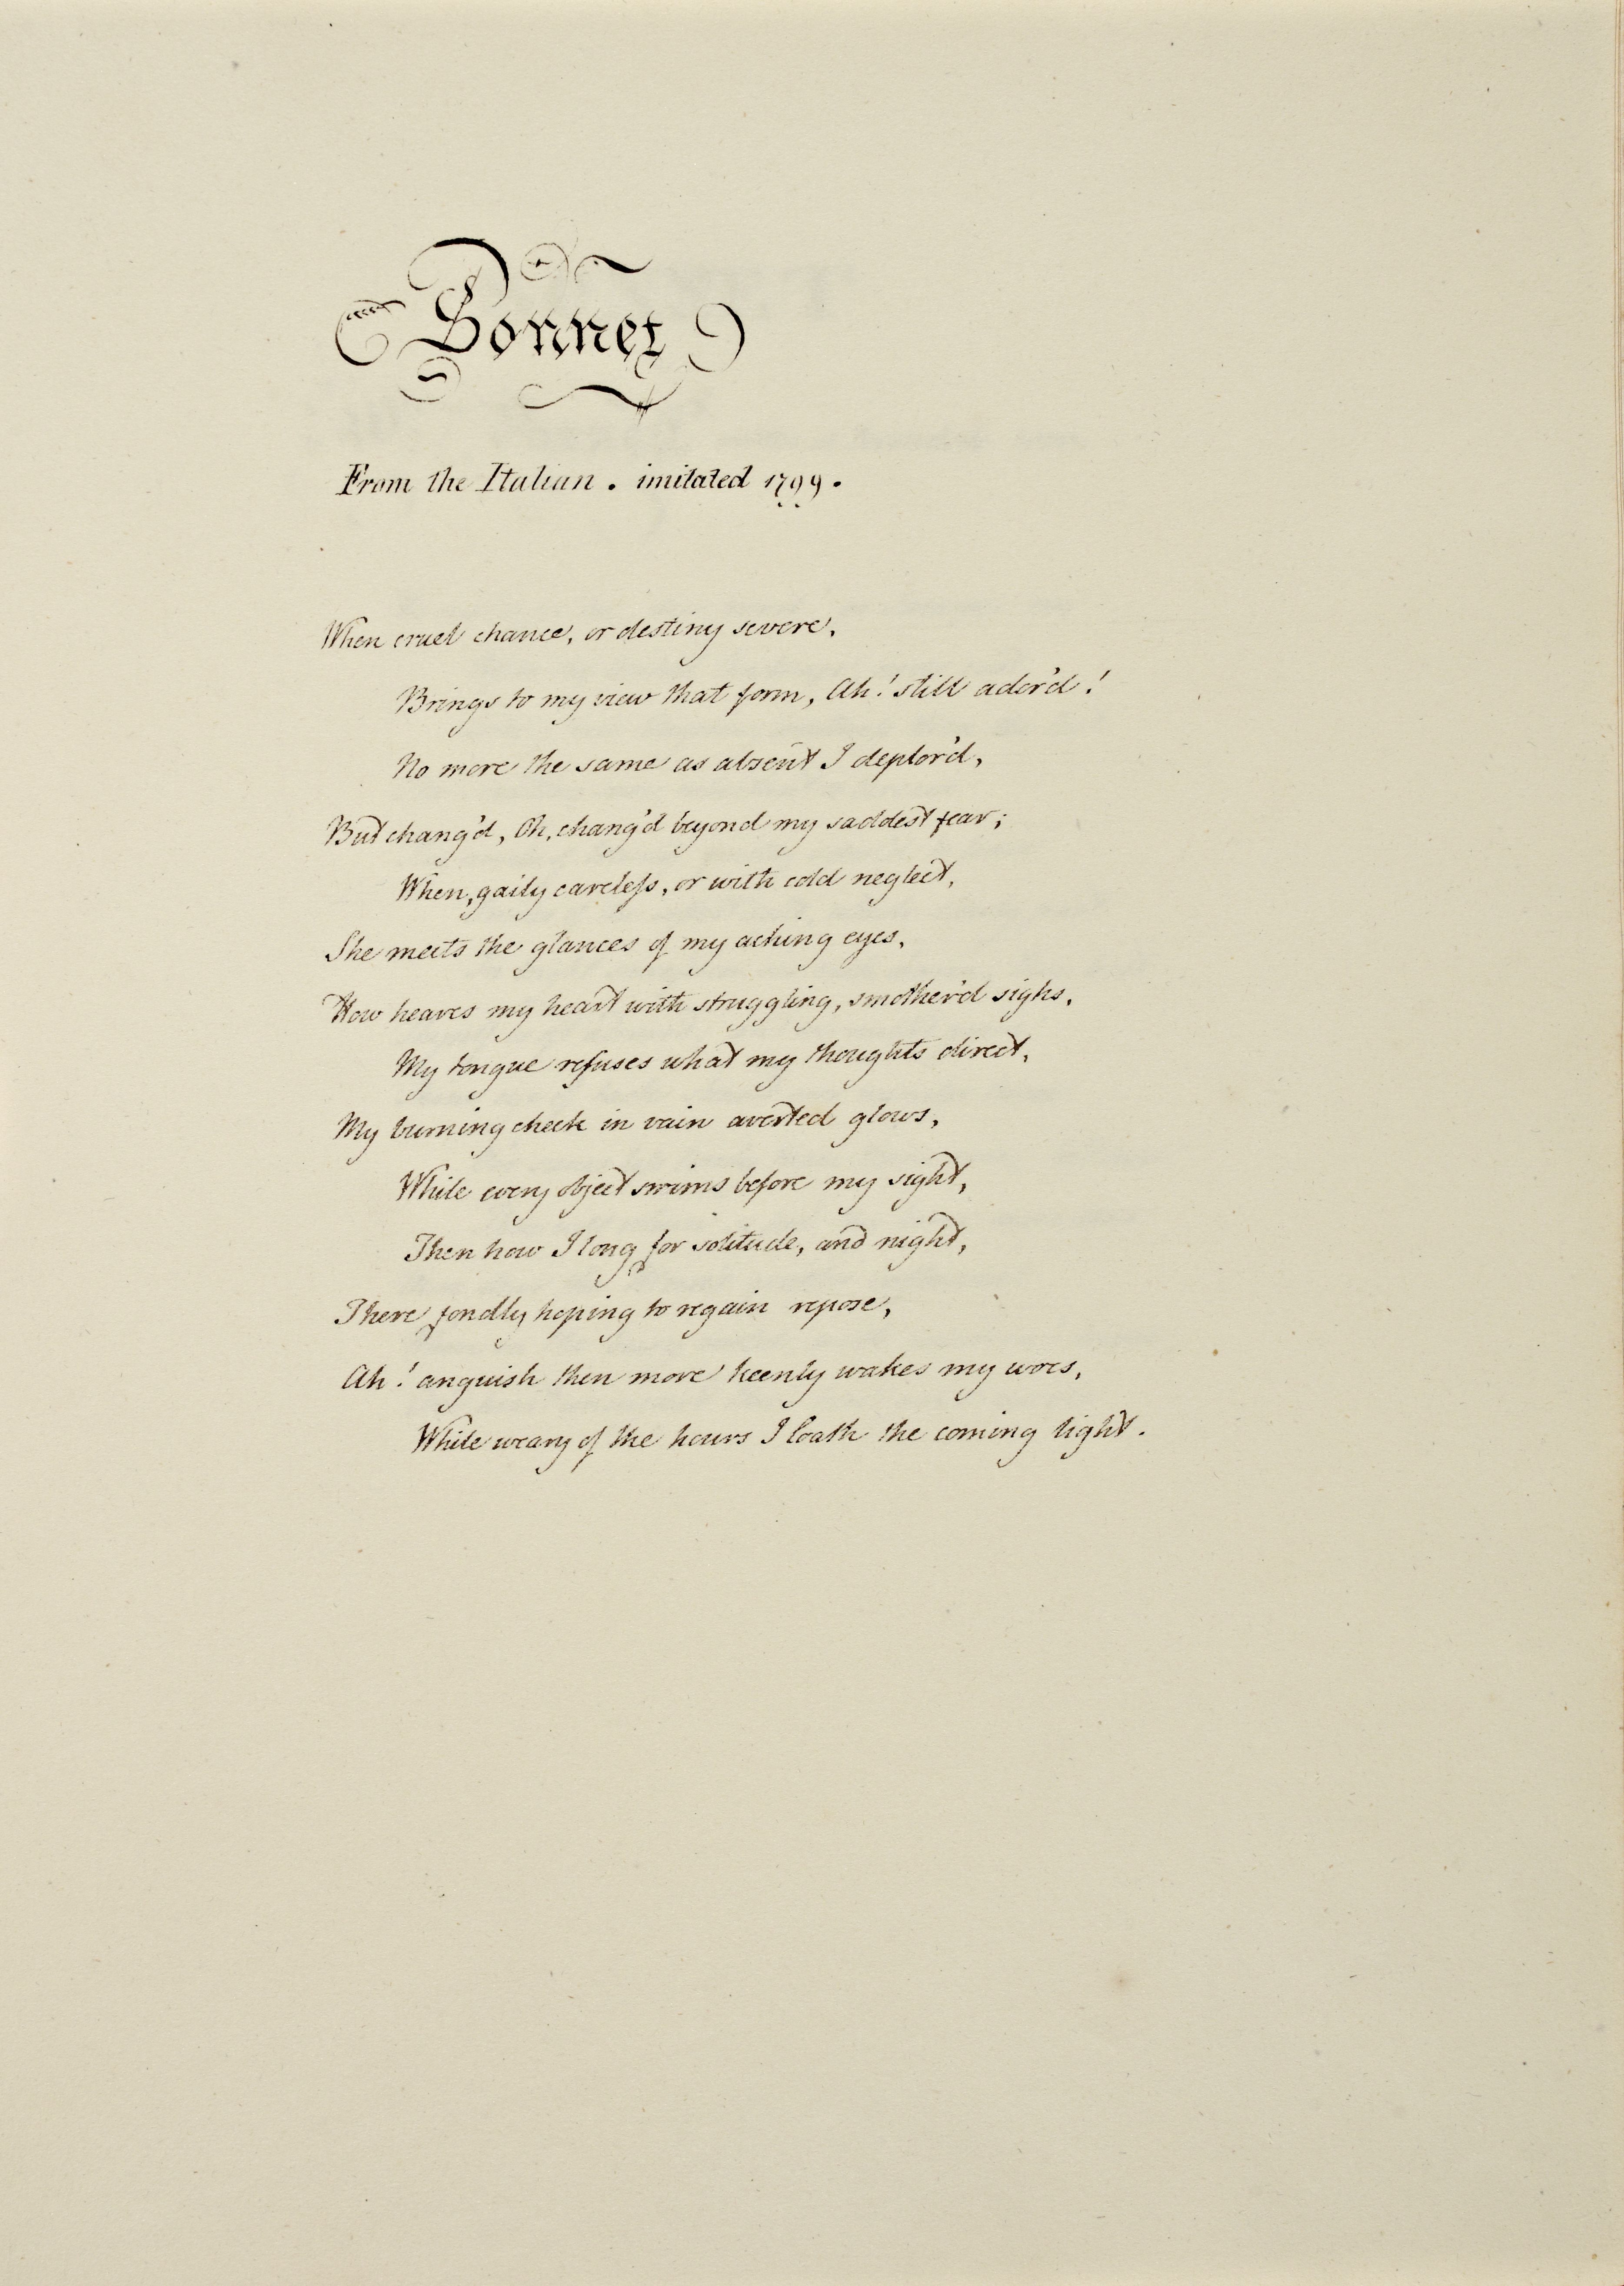 Sonnet
From the Italian. imitated 1799.
When cruel chance, or destiny severe,
Brings to my view that form, Ah! still ador'd!
No more the same as absent I deplor'd,
But chang'd, Oh, chang'd beyond my saddest fear;
When, gaily careleſs, or with cold neglect,
She meets the glances of my aching eyes,
How heaves my heart with struggling, smother'd sighs,
My tongue refuses what my thoughts direct,
My burning cheek in vain averted glows,
While every object swims before my sight,
Then how I long for solitude, and night,
There fondly hoping to regain repose,
Ah! anguish then more keenly wakes my woes,
While weary of the hours I loath the coming light.